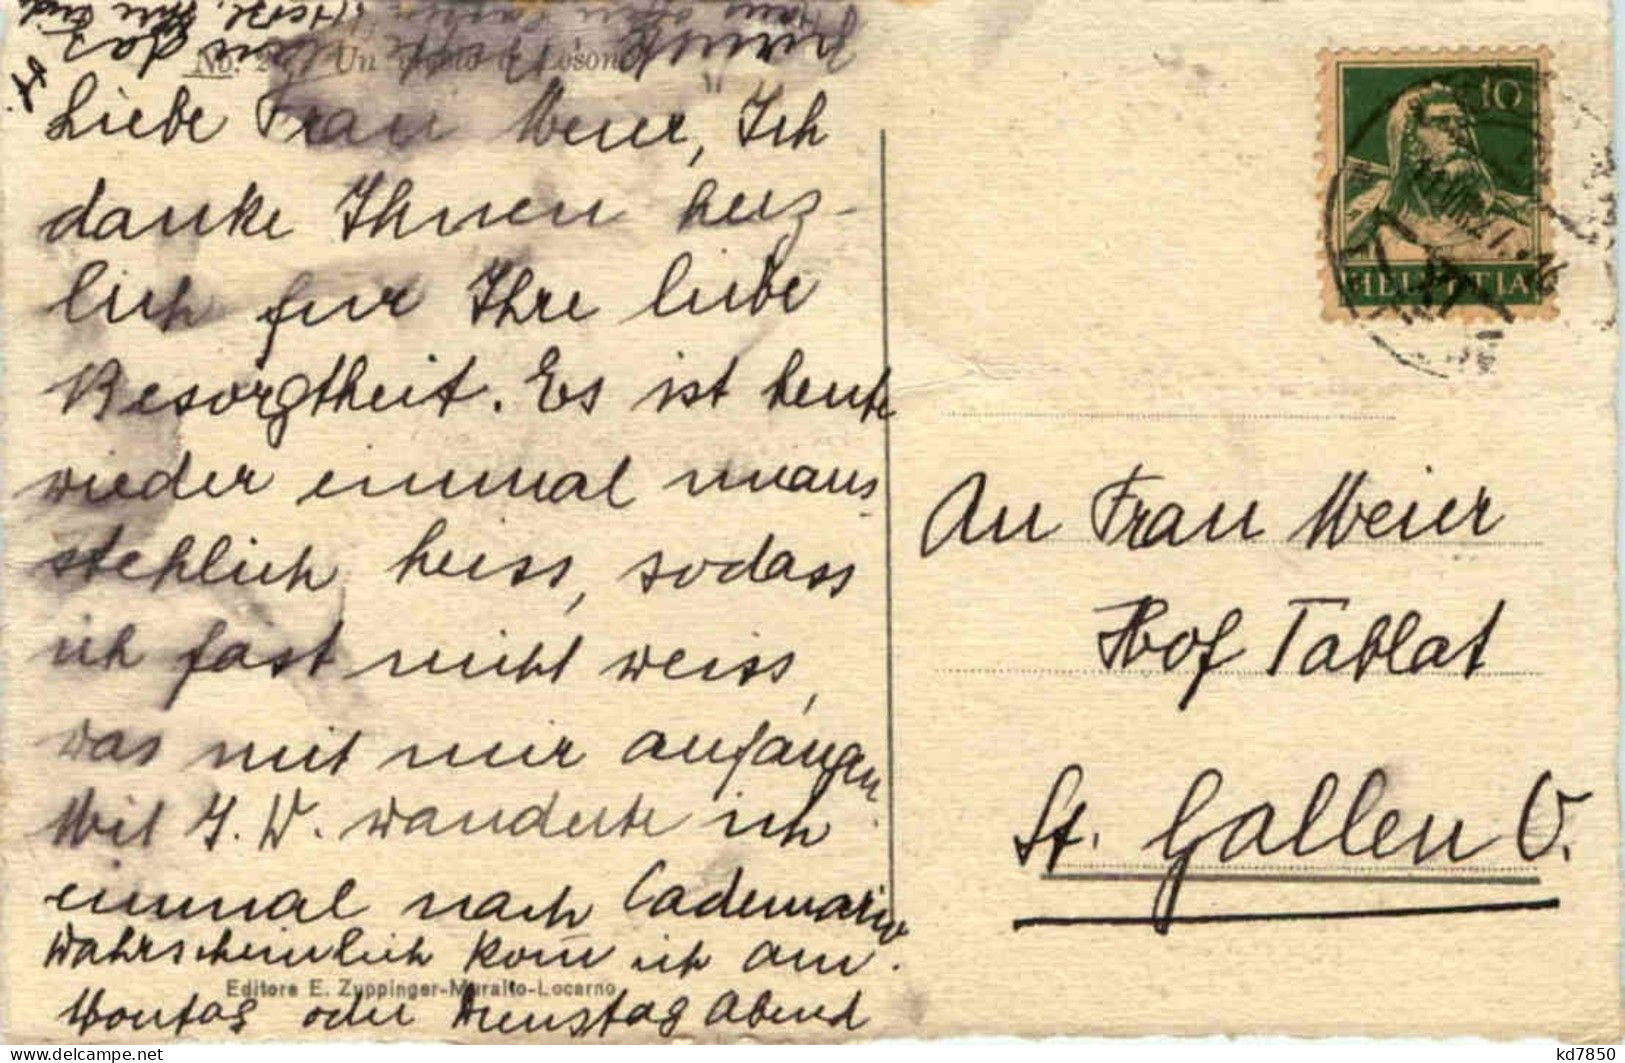 No. 2 Un Losone
Liebe Frau Meier, Ich
danke Ihnen herz-
lich für Ihre liebe
Besorgtheit. Es ist heute
wieder einmal unaus
stehlich heiss, sodass
ich fast nicht weiss,
was mit mir anfangen.
Mit J. W. wanderte ich
einmal nach Cademario
Wahrscheinlich kom̄ ich am
Montag oder Dienstag Abend
Editore E. Zuppinger-Muralto-Locarno
10
HELVETIA
An Frau Meier
Hof Tablat
St. Gallen O.
kd7850